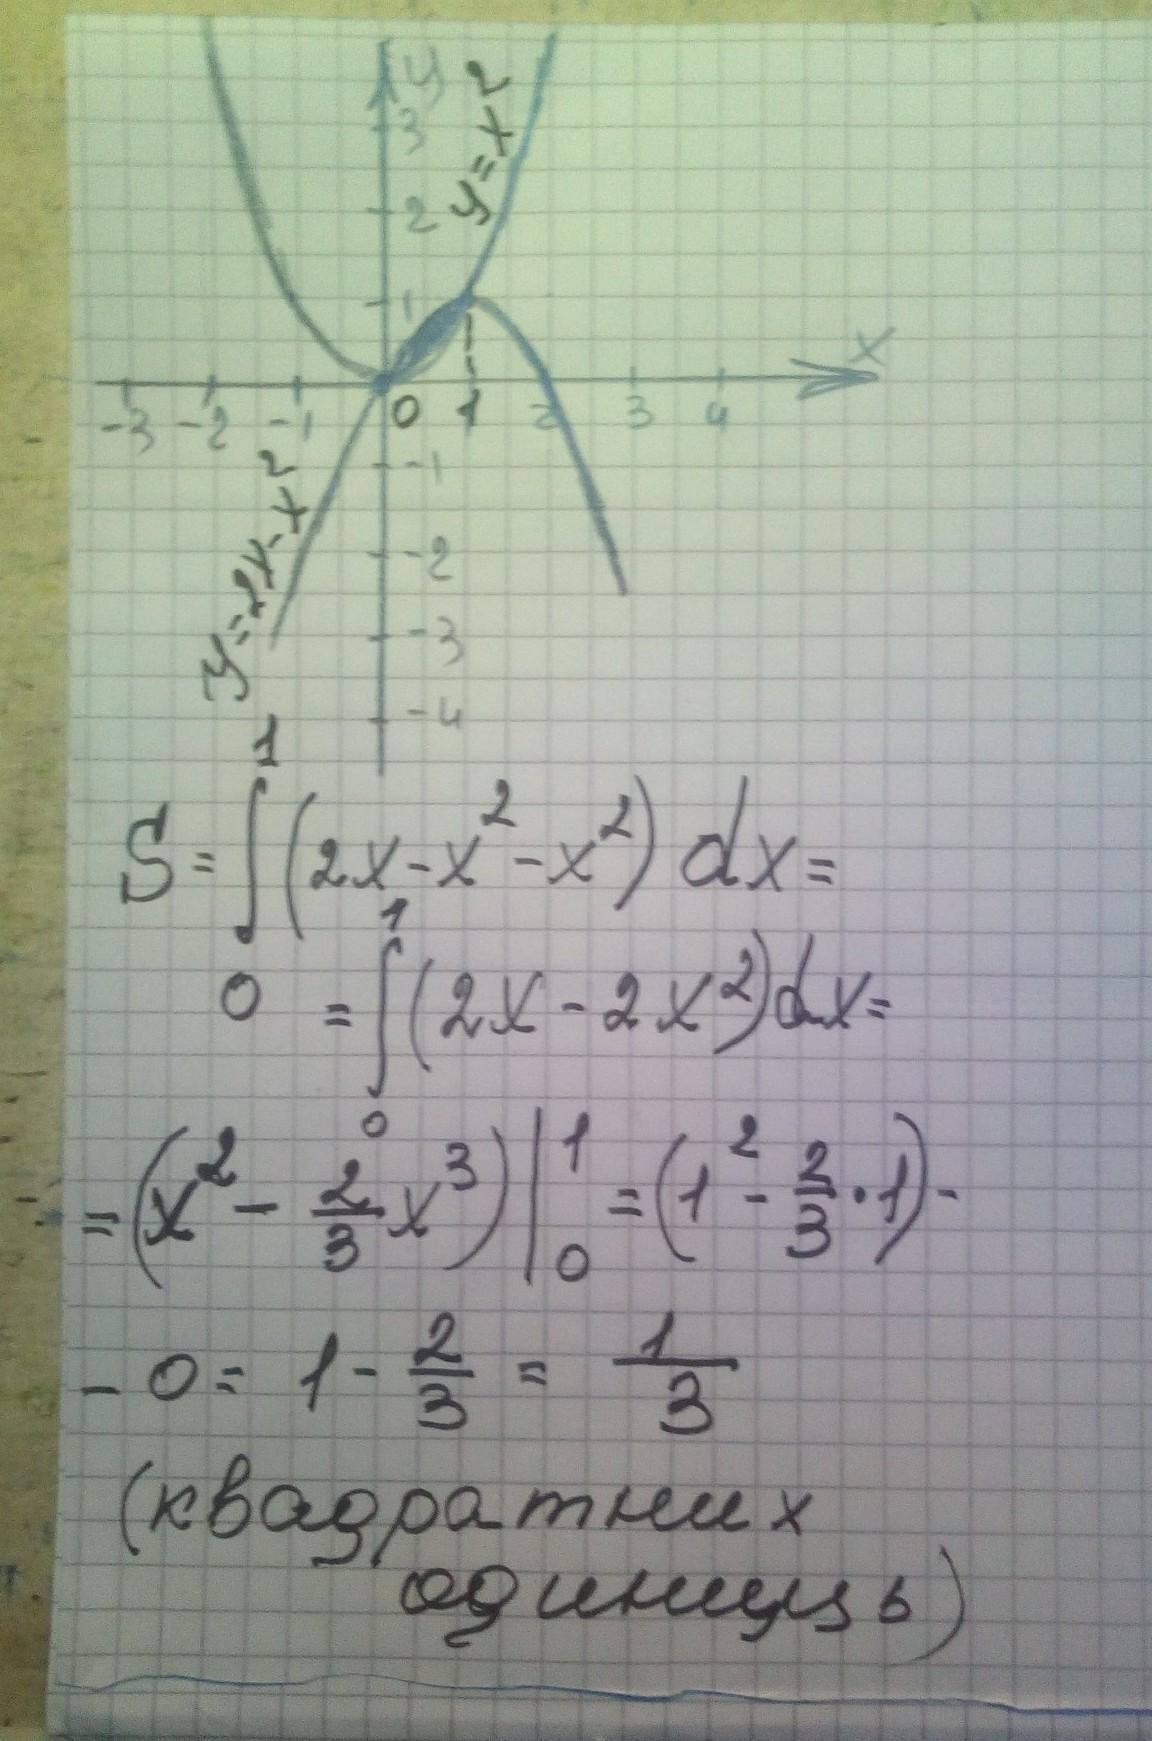 y
3
y=x²
2
1
x
-3 -2 -1 0 1 2 3 4
-1
y=2x-x²
-2
-3
-4
S = ∫₀¹ (2x - x² - x²) dx =
= ∫₀¹ (2x - 2x²) dx =
= (x² - 2/3 x³) |₀¹ = (1² - 2/3 · 1) -
- 0 = 1 - 2/3 = 1/3
(квадратних
одиниць)